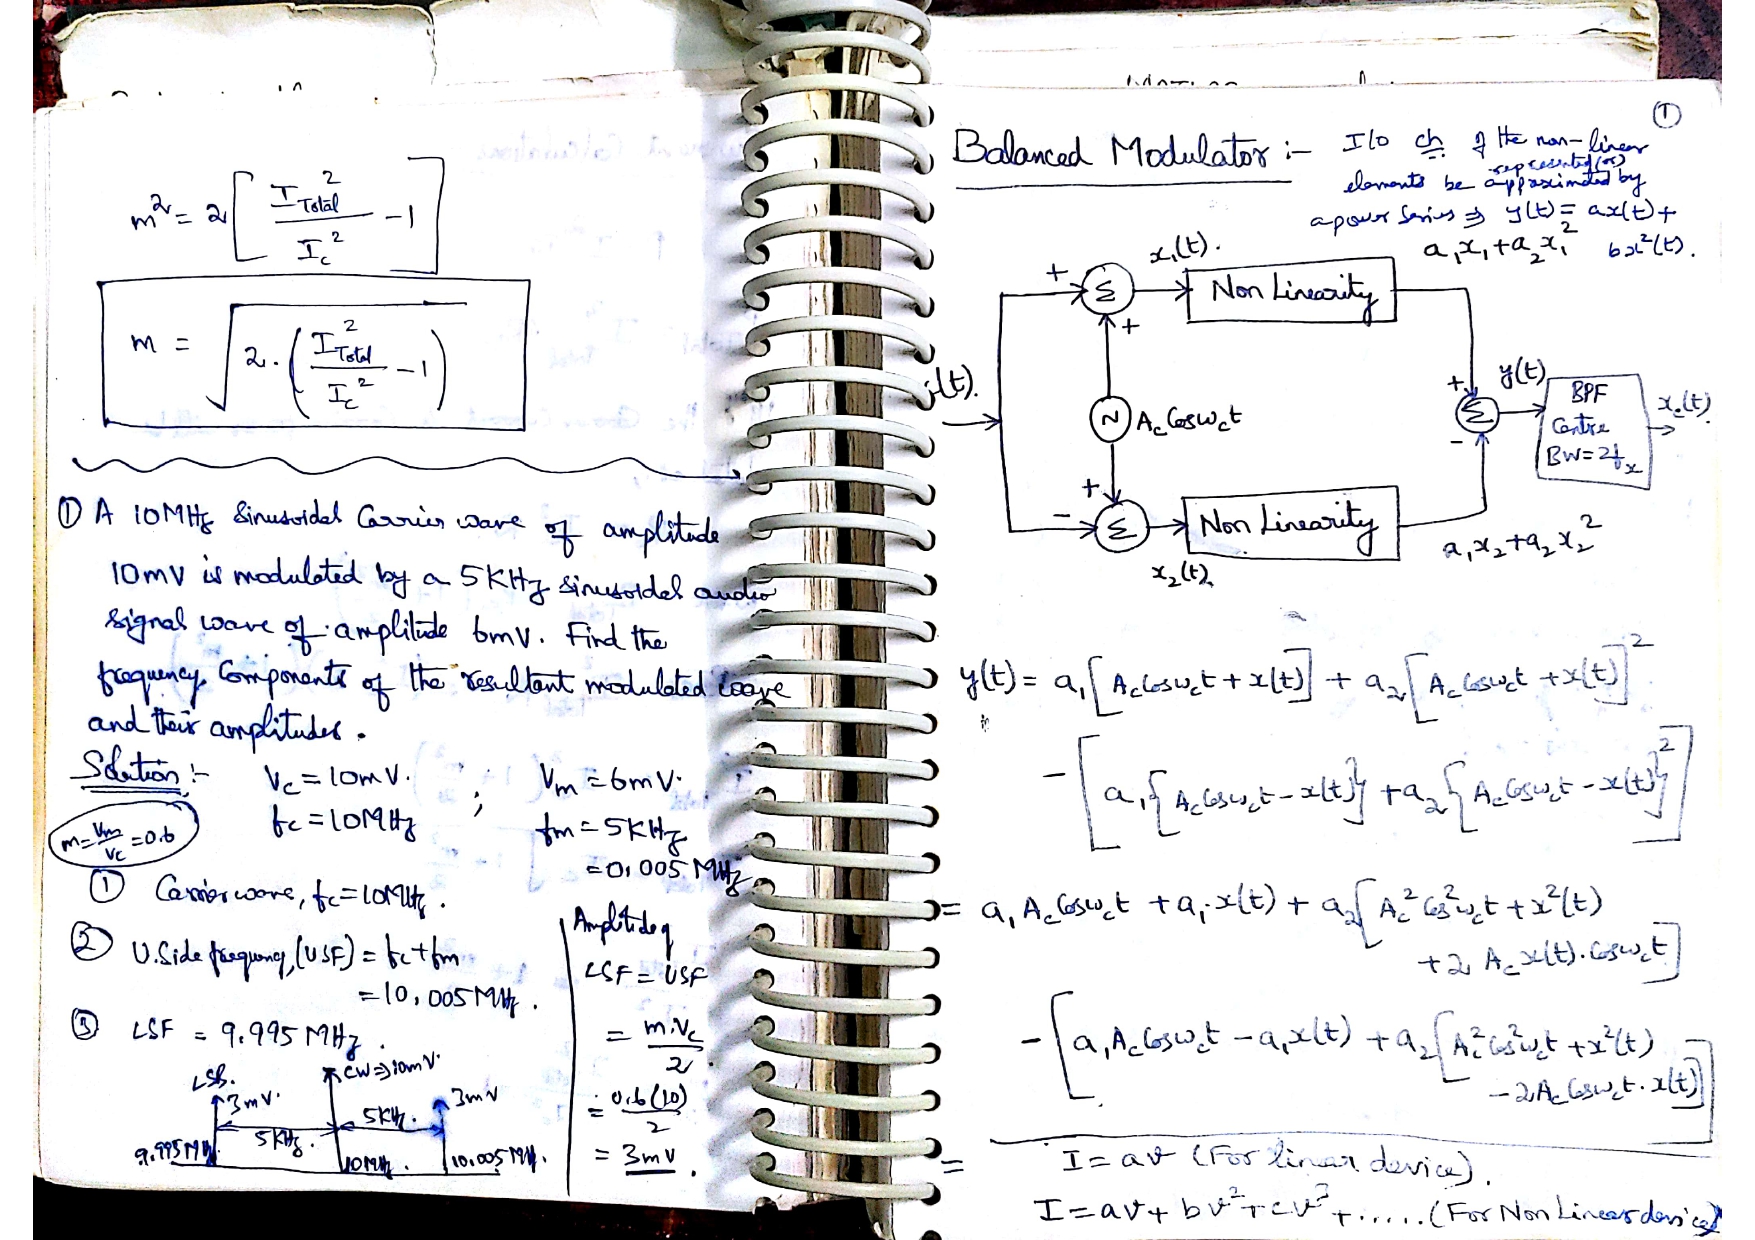 m² = 2 [ I Total² / I c² − 1 ]
m = √ 2 . ( I Total² / I c² − 1 )
① A 10MHz Sinusoidal Carrier wave of amplitude
10mV is modulated by a 5KHz sinusoidal audio
signal wave of amplitude 6mV. Find the
frequency components of the resultant modulated wave
and their amplitudes.
Solution :- Vc = 10mV. ; Vm = 6mV.
fc = 10MHz fm = 5KHz
m = Vm/Vc = 0.6
= 0.005 MHz
① Carrier wave, fc = 10MHz.
② U.Side frequency, (USF) = fc + fm
= 10.005 MHz.
③ LSF = 9.995 MHz.
Amplitude of
LSF = USF
= m.Vc / 2.
= 0.6(10) / 2
= 3mV.
LSB. CW ⇒ 10mV.
3mV. 3mV
5KHz. 5KHz.
9.995MHz 10MHz. 10.005MHz.
①
Balanced Modulator :- I/O ch. of the non-linear
elements be represented (or) approximated by
a power series ⇒ y(t) = ax(t) +
bx²(t).
a₁x₁ + a₂x₁²
x₁(t).
+ Σ Non Linearity
+
(t). ~ Ac Cosωct
+ Σ y(t) BPF
Centre
BW = 2fx
xc(t)
−
+
− Σ Non Linearity
x₂(t). a₁x₂ + a₂x₂²
y(t) = a₁[Ac Cosωct + x(t)] + a₂[Ac Cosωct + x(t)]²
− [a₁{Ac Cosωct − x(t)} + a₂{Ac Cosωct − x(t)}²]
= a₁ Ac Cosωct + a₁.x(t) + a₂[Ac² Cos²ωct + x²(t)
+ 2 Ac x(t).Cosωct]
− [a₁ Ac Cosωct − a₁x(t) + a₂[Ac² Cos²ωct + x²(t)
− 2Ac Cosωct.x(t)]]
= I = av (For linear device).
I = av + bv² + cv³ + ..... (For Non Linear device)